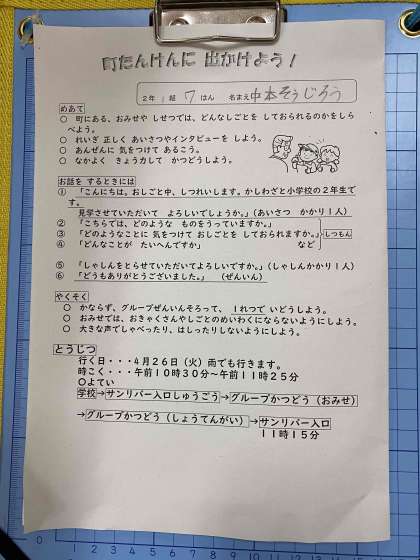 町たんけんに 出かけよう！
２年 １ 組 ７ はん 名まえ 中本そうじろう
めあて
○ 町にある、おみせや しせつでは、どんなしごとを しておられるのかをしらべよう。
○ れいぎ 正しく あいさつやインタビューを しよう。
○ あんぜんに 気をつけて あるこう。
○ なかよく きょう力して かつどうしよう。
お話を するときには
① 「こんにちは。おしごと中、しつれいします。かしわざと小学校の２年生です。
見学させていただいて よろしいでしょうか。」（あいさつ かかり１人）
② 「こちらでは、どのような ものをうっていますか。」
③ 「どのようなことに 気をつけて おしごとを しておられますか。」 しつもん
④ 「どんなことが たいへんですか」 など
⑤ 「しゃしんをとらせていただいてよろしいですか。」（しゃしんかかり１人）
⑥ 「どうもありがとうございました。」 （ぜんいん）
やくそく
○ かならず、グループぜんいんそろって、１れつで いどうしよう。
○ おみせでは、おきゃくさんやしごとのめいわくにならないようにしよう。
○ 大きな声でしゃべったり、はしったりしないようにしよう。
とうじつ
行く日・・・４月２６日（火）雨でも行きます。
時こく・・・午前１０時３０分～午前１１時２５分
○よてい
学校→サンリバー入口しゅうごう→グループかつどう（おみせ）
→グループかつどう（しょうてんがい）→サンリバー入口
１１時１５分
0 1 2 3 4 5 6 7 8 9 10 11 12 13 14 15 16 17 18